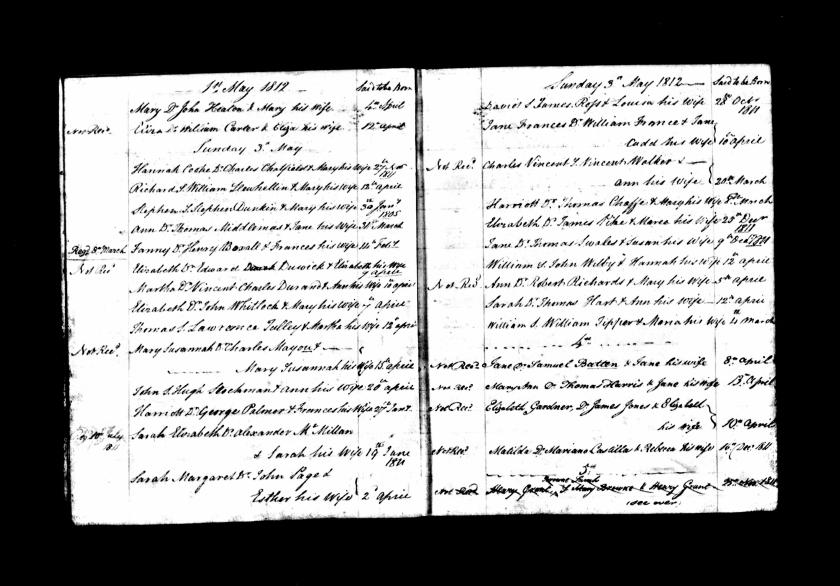 1st May 1812 Said to be Born
Mary Dr John Heaton & Mary his Wife 4th April
Not Recd. Eliza Dr William Carter & Eliza his Wife 12th April
Sunday 3d May
Hannah Cooke Dr Charles Chatfield & Mary his Wife 27th 1811
Richard S William & Mary his Wife 12th April
Stephen S Stephen Dunkin & Mary his Wife 30th Jany 1805
Ann Dr Thomas Middlemas & Jane his Wife 31st March
Regd 8th March Fanny Dr Henry Boxall & Frances his Wife 14th Feby
Not Recd Elizabeth Dr Edward Dewick & Elizabeth his Wife 7 April
Martha Dr Vincent Charles Durand & Ann his Wife 10 April
Elizabeth Dr John Whitlock & Mary his Wife 7th April
Thomas S Lawrence Tulley & Martha his Wife 12th April
Not Recd. Mary Susannah Dr Charles Mayou &
Mary Susannah his Wife 15th April
John S Hugh Stockman & Ann his Wife 20th April
Harriott Dr George Palmer & Frances his Wife 27th Jany
10th July 1811 Sarah Elizabeth Dr Alexander McMillan
& Sarah his Wife 19th June 1811
Sarah Margaret Dr John Page &
Esther his Wife 2d April
Sunday 3d May 1812 Said to be Born
David S James Ross & Louisa his Wife 28th Octr 1811
Jane Frances Dr William France & Jane
Cudd his Wife 10th April
Not Recd. Charles Vincent S Vincent Walker &
Ann his Wife 20th March
Harriott Dr Thomas Chaffe & Mary his Wife 8th March
Elizabeth Dr James Pike & Maria his Wife 25th Decr 1811
Jane Dr Thomas Swales & Susan his Wife 9th Decr 1811
William S John Wilby & Hannah his Wife 12th April
Not Recd. Ann Dr Robert Richards & Mary his Wife 5th April
Sarah Dr Thomas Hart & Ann his Wife 12th April
William S William Tipper & Maria his Wife 4th March
4th
Not Recd. Jane Dr Samuel Batten & Jane his Wife 8th April
Not Recd. Mary Ann Dr Thomas Harris & Jane his Wife 13th April
Not Recd. Elizabeth Gardner, Dr James Jones & Elizabeth
his Wife 10th April
Not Recd. Matilda Dr Mariano Castilla & Rebecca his Wife 14th Decr 1811
5th
Not Recd Henry Grant, S Mary Browne & Henry Grant 23rd Novr 1811
see over.